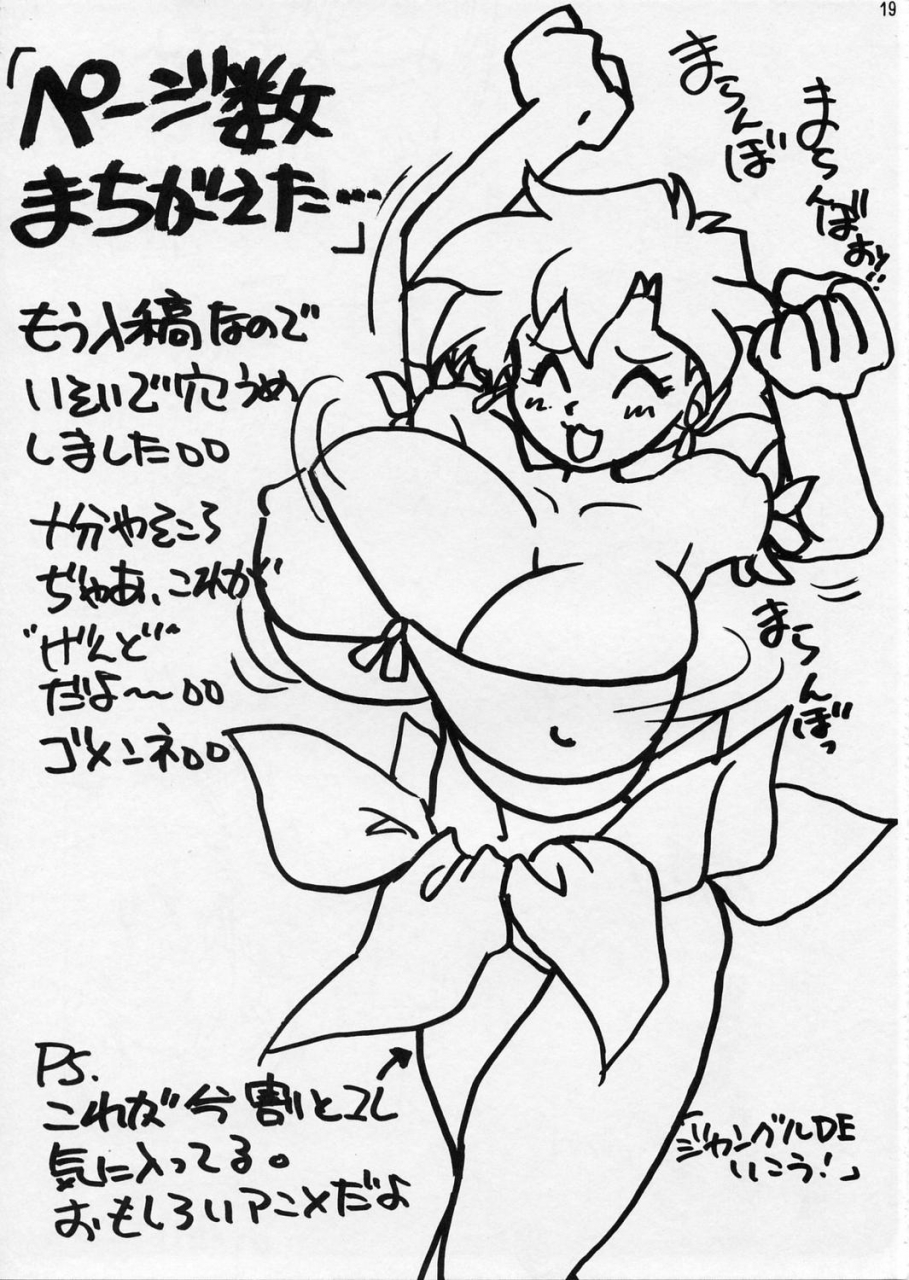 19
「ページ数
まちがえた…」
もう入稿なので
いそいで穴うめ
しました○○
十分やそころ
ぢゃあ、これが
"げんど"
だよ〜○○
ゴメンネ○○
まらんぼ
まらんばおッ!!
まらんぼっ
PS.
これが今割とコレ
気に入ってる。
おもしろいアニメだよ
「ジャングルDE
いこう!」